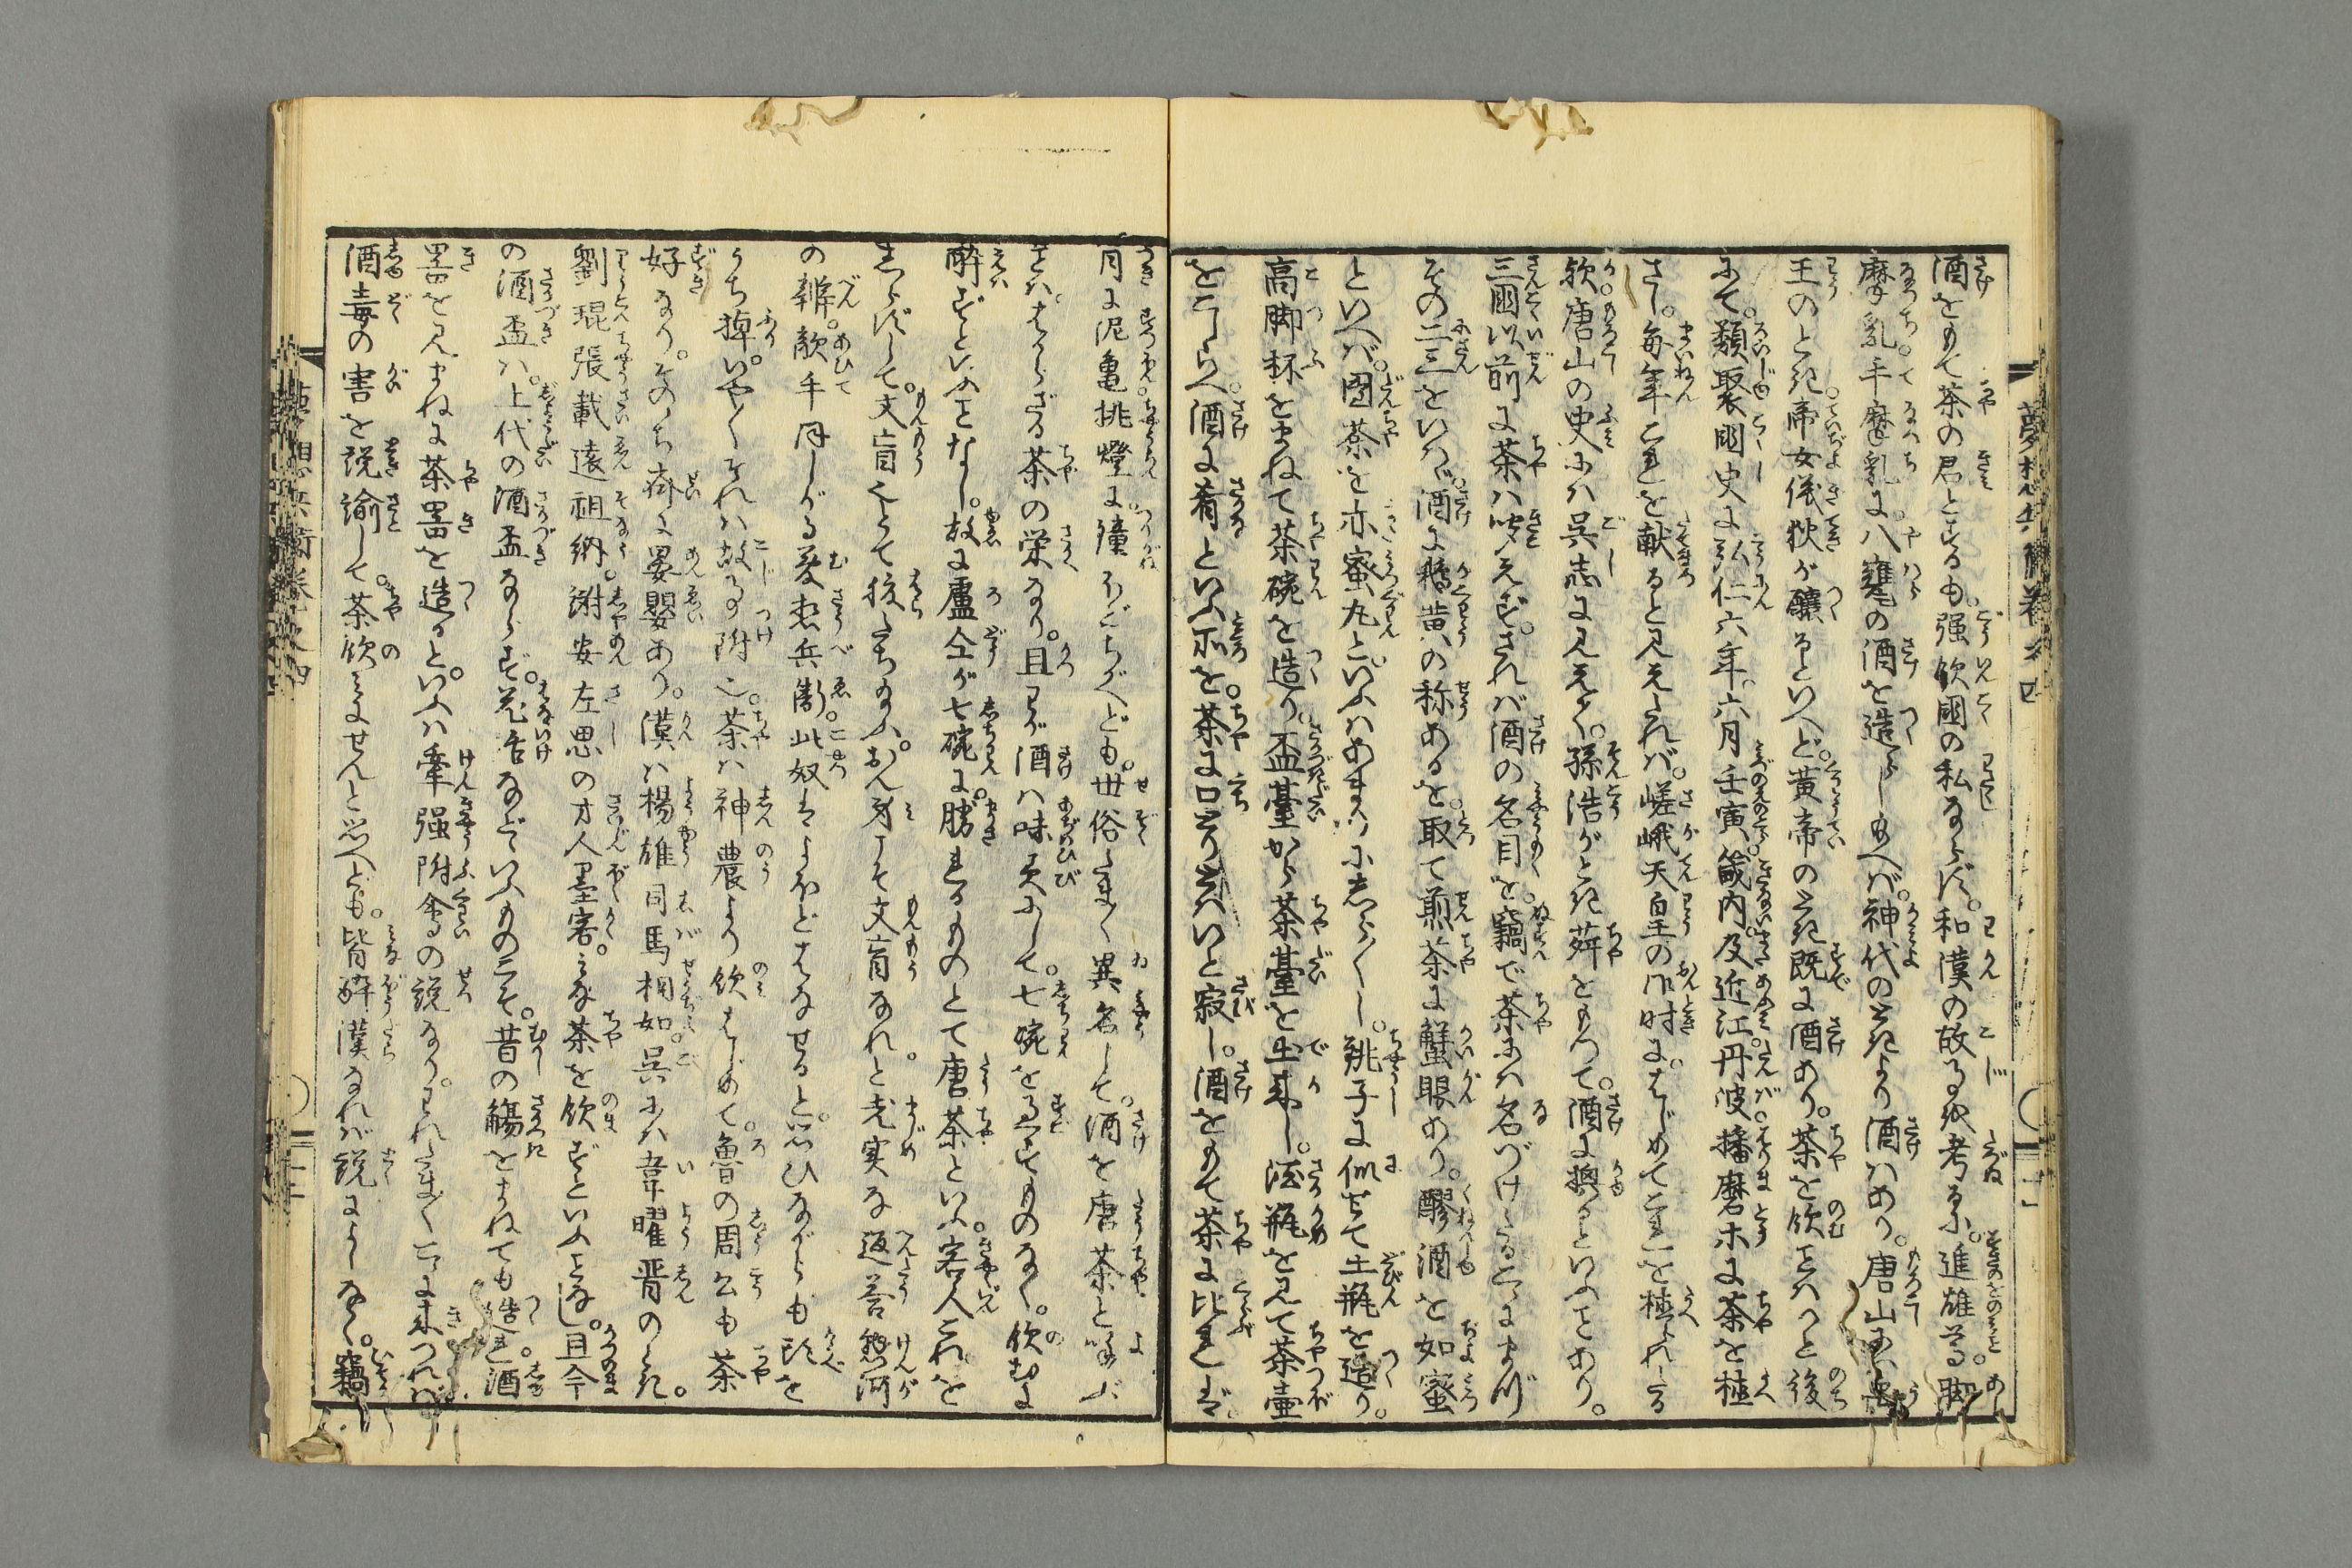 夢想兵衛巻之四
酒をもて茶の君とするも。強飲國の私ならず。和漢の故事を考るに。進雄尊。脚
摩乳手摩乳に。八甕の酒を造らしめ給へば。神代のときより酒はあり。唐山には禹
王のとき。帝女儀狄が醸るといへど。黄帝のとき既に酒あり。茶を飲ことはつと後
にて。類聚國史に弘仁六年。六月壬寅。畿内。及近江。丹波。播磨ホに茶を植
さし。毎年これを献ると見えたれば。嵯峨天皇の御時に。はじめてこれを植られたる
歟。唐山の史には呉志に見えて。孫浩がとき荈をもつて。酒に換るといふことあり。
三國以前に茶は聞えず。されば酒の名目を。竊で茶には名づけたることにまづ
その二三をいはゞ。酒に鵞黄の称あるを。取て煎茶に蟹眼あり。醪酒を如蜜
といへば。團茶を亦蜜丸と。いふはあまりにしら〴〵し。銚子に似せて土瓶を造り。
高脚杯をまねて茶碗を造り。盃臺から茶臺を出来し。酒瓶を見て茶壷
をこしらへ。酒に肴といふ所を。茶に口とりさへいと寂し。酒をもて茶に比れば。
月に泥亀挑燈に。鐘ほどちがへども。世俗たま〳〵異名して。酒を唐茶と喚ぶ
ことは。はからざる茶の栄なり。且わが酒は味美にして。七碗を過すものなく。飲むに
酔ずといふことなし。故に盧仝が七碗に。勝れるものとて唐茶といふ。客人これを
しらずして。文盲とて捧ちたまふ。おん身こそ文盲なれと老実な返答懸河
の辨。敵手ほしがる夢想兵衛。此奴はよほどはなせると。思ひながらも頭を
うち掉。いや〳〵それは故事附也。茶は神農より飲はじめて。魯の周公も茶
好なり。そのゝち齊に晏嬰あり。漢は楊雄司馬相如。呉には韋曜晋のとき。
劉琨張載遠祖納。謝安左思の才人墨客。みな茶を飲ずといふことなし。且今
の酒盃は。上代の酒盃ならず。花活などいふものこそ。昔の觴をまねても造れ。酒
器を見まねに茶器を造ると。いふは牽強附會の説なり。われたま〳〵こゝに来つれば
酒毒の害を説諭して。茶飲みにせんと思へども。皆酔漢なれば説によしなく。竊
夢想兵衛巻之四